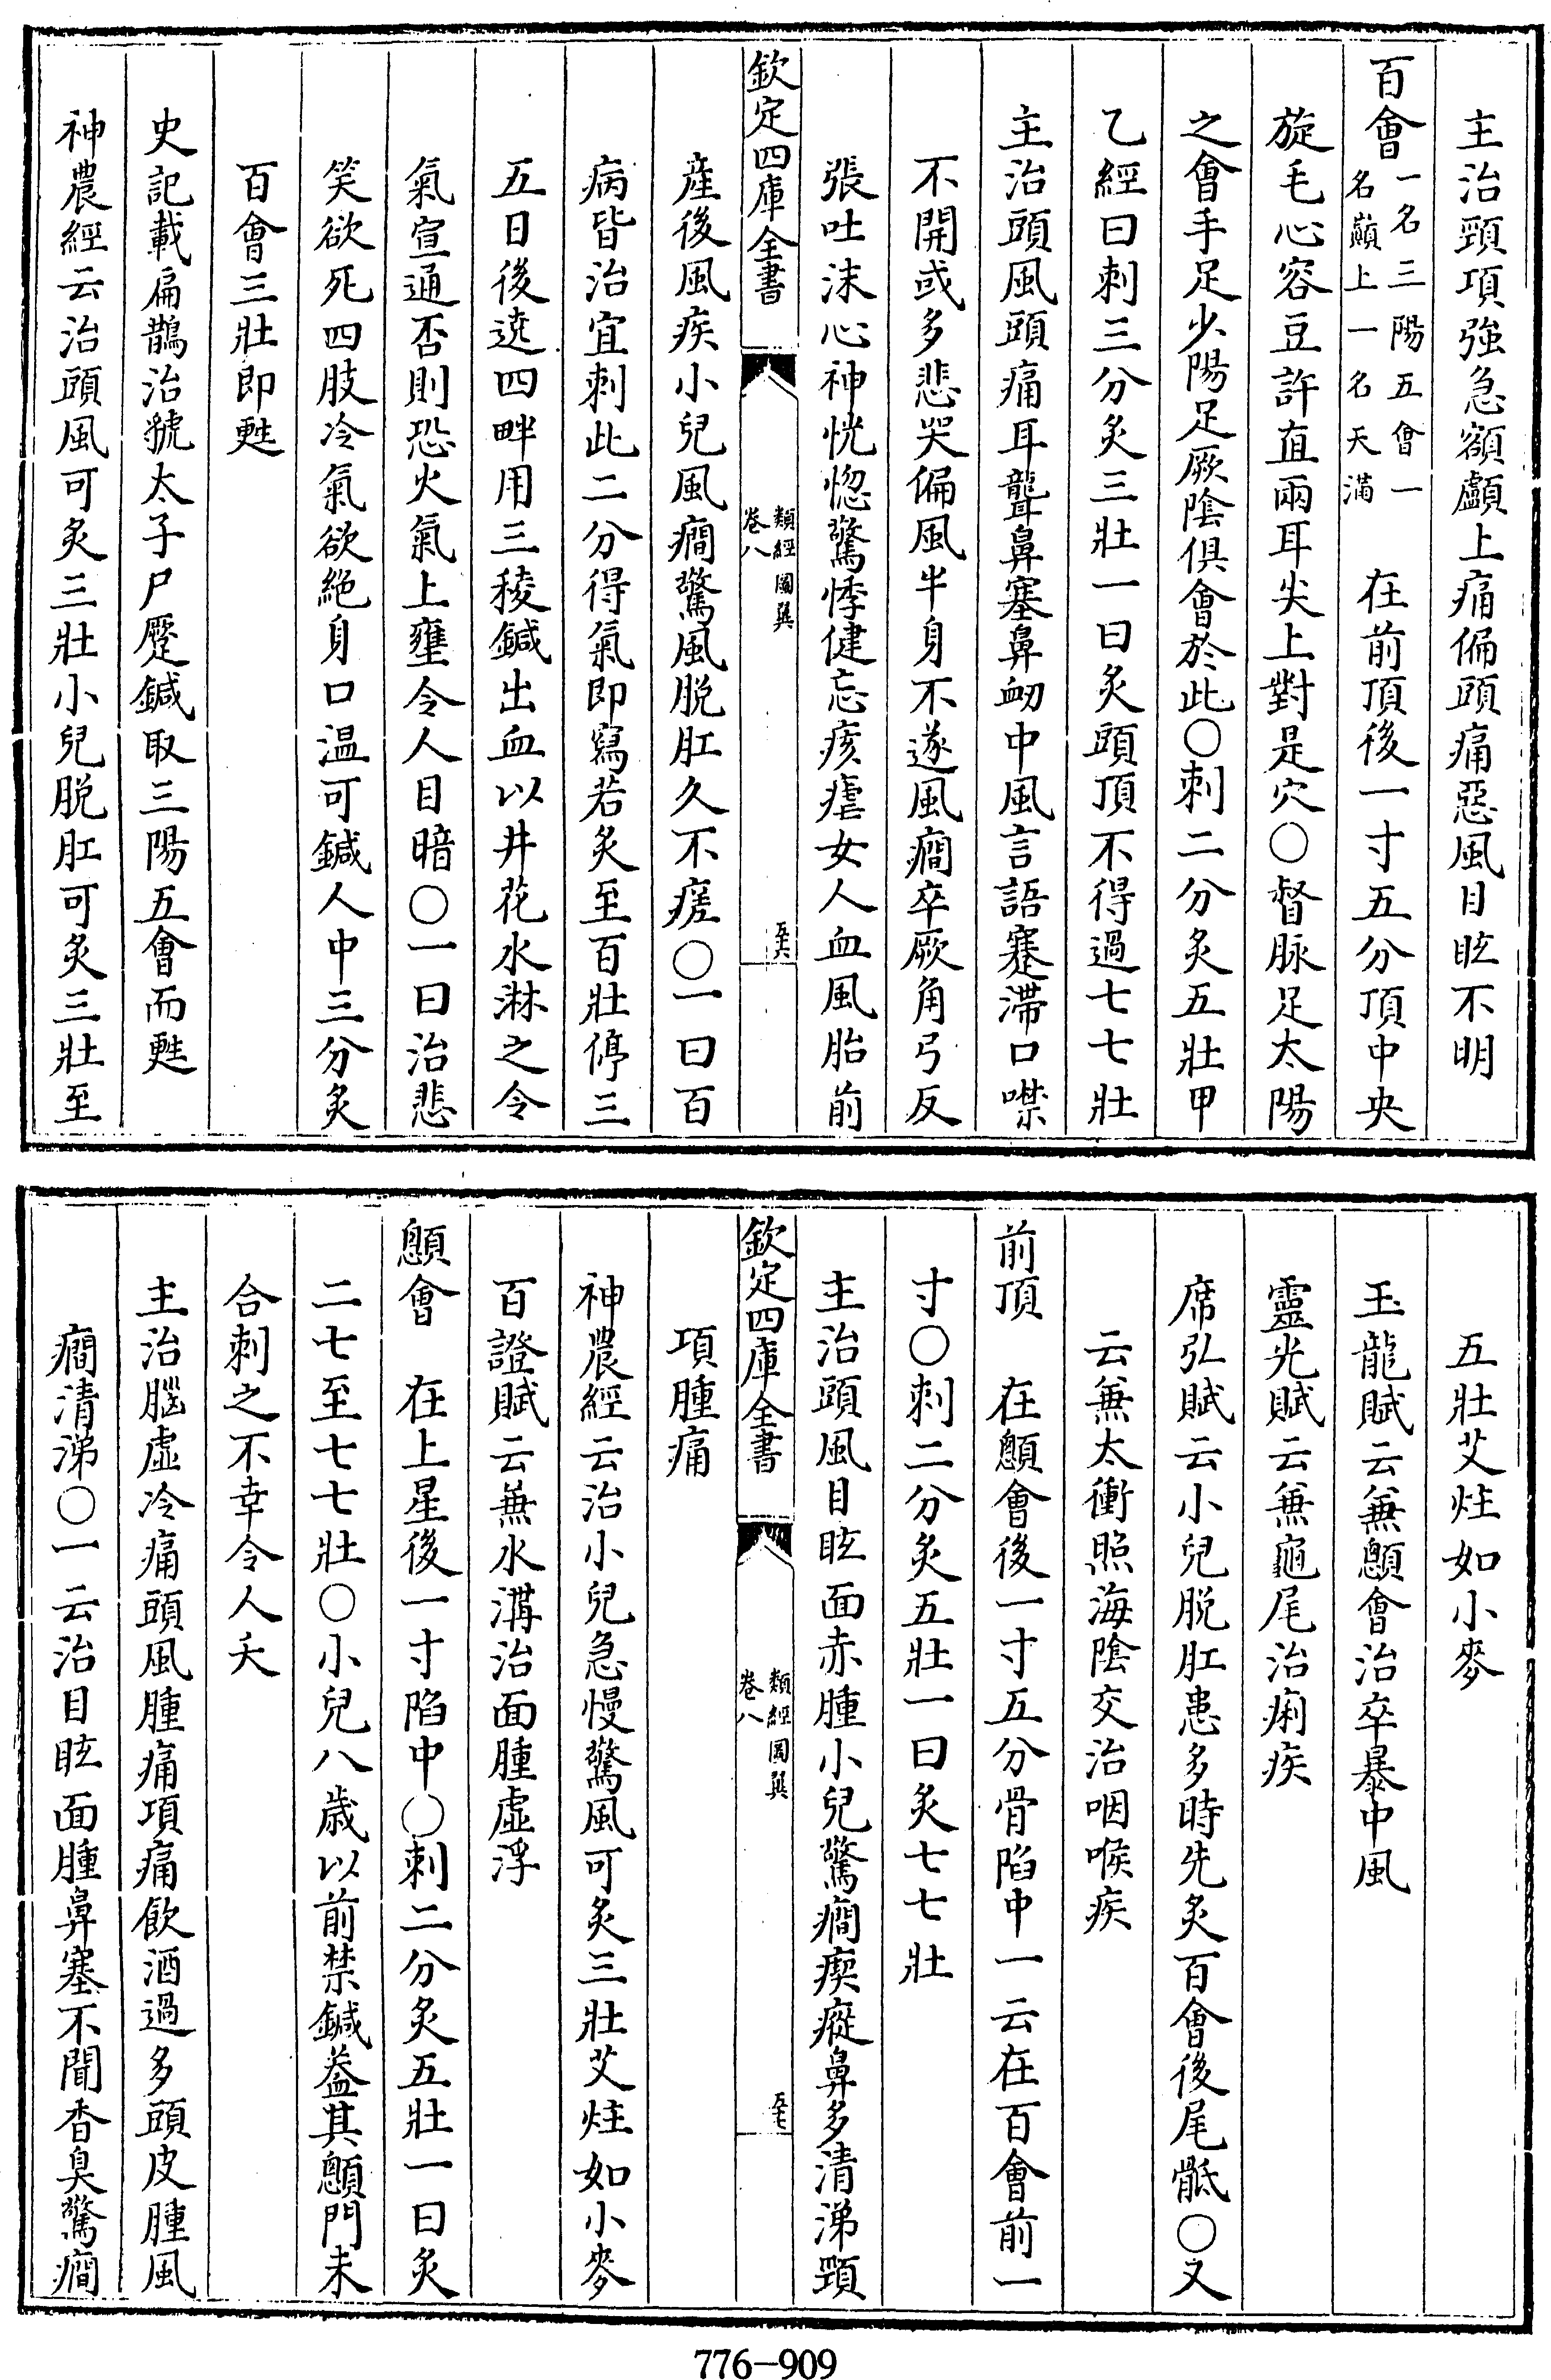 主治頸項強急額顱上痛偏頭痛惡風目眩不明
百會一名三陽五會一名巔上一名天滿　在前頂後一寸五分頂中央
旋毛心容豆許直兩耳尖上對是穴〇督脉足太陽
之會手足少陽足厥陰俱會於此〇刺二分灸五壯甲
乙經曰刺三分灸三壯一曰灸頭頂不得過七七壯
主治頭風頭痛耳聾鼻塞鼻衂中風言語蹇滯口噤
不開或多悲哭偏風半身不遂風癇卒厥角弓反
張吐沫心神恍惚驚悸健忘痎瘧女人血風胎前
欽定四庫全書　類經圖翼卷八　五六
産後風疾小兒風癇驚風脱肛久不瘥〇一曰百
病皆治宜刺此二分得氣即寫若灸至百壯停三
五日後遶四畔用三稜鍼出血以井花水淋之令
氣宣通否則恐火氣上壅令人目暗〇一曰治悲
笑欲死四肢冷氣欲絶身口温可鍼人中三分灸
百會三壯即甦
史記載扁鵲治虢太子尸蹷鍼取三陽五會而甦
神農經云治頭風可灸三壯小兒脱肛可灸三壯至
五壯艾炷如小麥
玉龍賦云兼顖會治卒暴中風
靈光賦云兼龜尾治痢疾
席弘賦云小兒脱肛患多時先灸百會後尾骶〇又
云兼太衝照海陰交治咽喉疾
前頂　在顖會後一寸五分骨陷中一云在百會前一
寸〇刺二分灸五壯一曰灸七七壯
主治頭風目眩面赤腫小兒驚癇瘈瘲鼻多清涕頸
欽定四庫全書　類經圖翼卷八　五七
項腫痛
神農經云治小兒急慢驚風可灸三壯艾炷如小麥
百證賦云兼水溝治面腫虛浮
顖會　在上星後一寸陷中〇刺二分灸五壯一曰灸
二七至七七壯〇小兒八歳以前禁鍼葢其顖門未
合刺之不幸令人夭
主治腦虛冷痛頭風腫痛項痛飲酒過多頭皮腫風
癇清涕〇一云治目眩面腫鼻塞不聞香臭驚癇
776-909